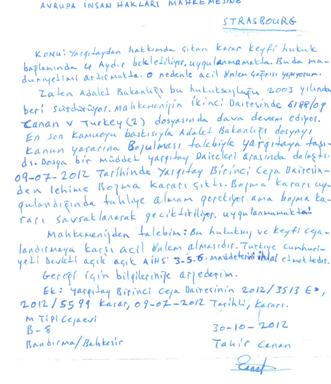 AVRUPA İNSAN HAKLARI MAHKEMESİNE
STRASBOURG
KONU: Yargıtaydan hakkımda çıkan karar keyfi hukuk
bağlamında 4 Aydır bekletiliyor, uygulanmamakta. Buda ma-
duriyetimi artırmakta. O nedenle acil önlem çağrısı yapıyorum.
Zaten Adalet Bakanlığı bu hukuksuzluğu 2003 yılından
beri sürdürüyor. Mahkemenizin ikinci Dairesinde 6188/09
Canan v Turkey (2) dosyasında dava devam ediyor.
En son kamuoyu baskısıyla Adalet Bakanlığı dosyayı
Kanun yararına Bozulması talebiyle yargıtaya taşı-
dı. Dosya bir müddet yargıtay Daireleri arasında dolaştı.
09-07-2012 Tarihinde Yargıtay Birinci Ceza Dairesin-
den lehime Bozma kararı çıktı. Bozma kararı uy-
gulandığında tahliye olmam gerekiyor ama bozma ka-
rarı savsaklanarak geciktiriliyor, uygulanmamakta!
Mahkemenizden talebim: Bu hukuksuz ve keyfi ceza-
landırmaya karşı acil önlem almasıdır. Türkiye cumhuri-
yeti devleti açık açık AİHS 3-5-6. maddelerini ihlal etmektedir.
Gereği için bilgilerinize arzederim.
Ek: Yargıtay Birinci Ceza Dairesinin 2012/3513 E,
2012/5599 Karar, 09-07-2012 Tarihli, kararı.
M Tipi Cezaevi
B-8 30-10-2012
Bandırma/Balıkesir Tahir Canan